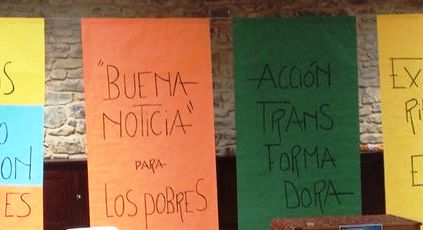 S
O
ON
ES
"BUENA
NOTICIA"
PARA
LOS POBRES
ACCIÓN
TRANS
FORMA
DORA
EX
RI
E